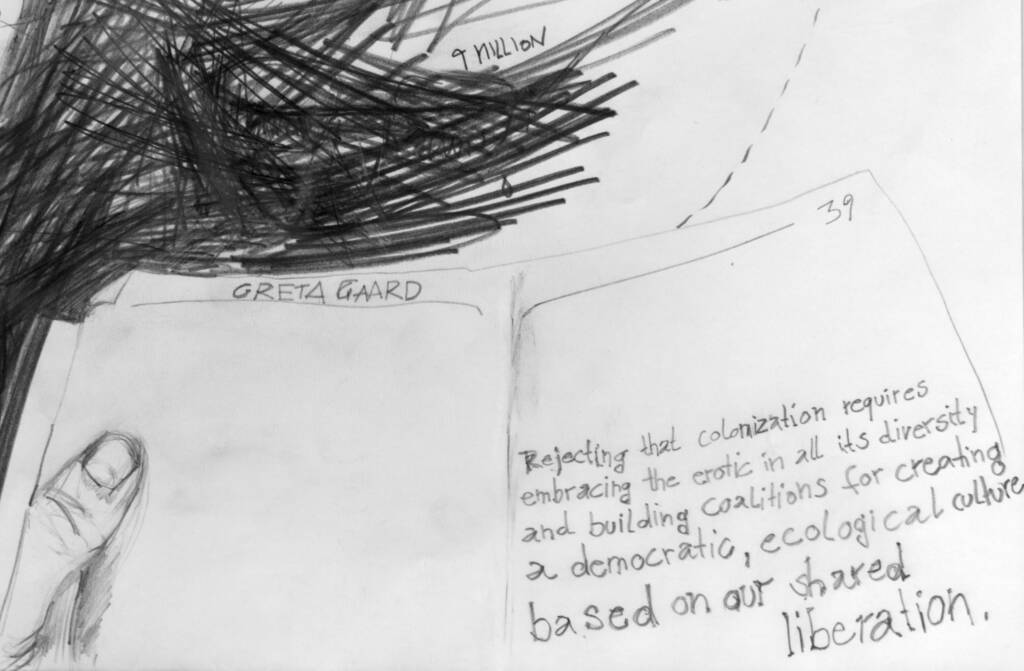 9 MILLION
39
GRETA GAARD
Rejecting that colonization requires
embracing the erotic in all its diversity
and building coalitions for creating
a democratic, ecological culture
based on our shared
liberation.